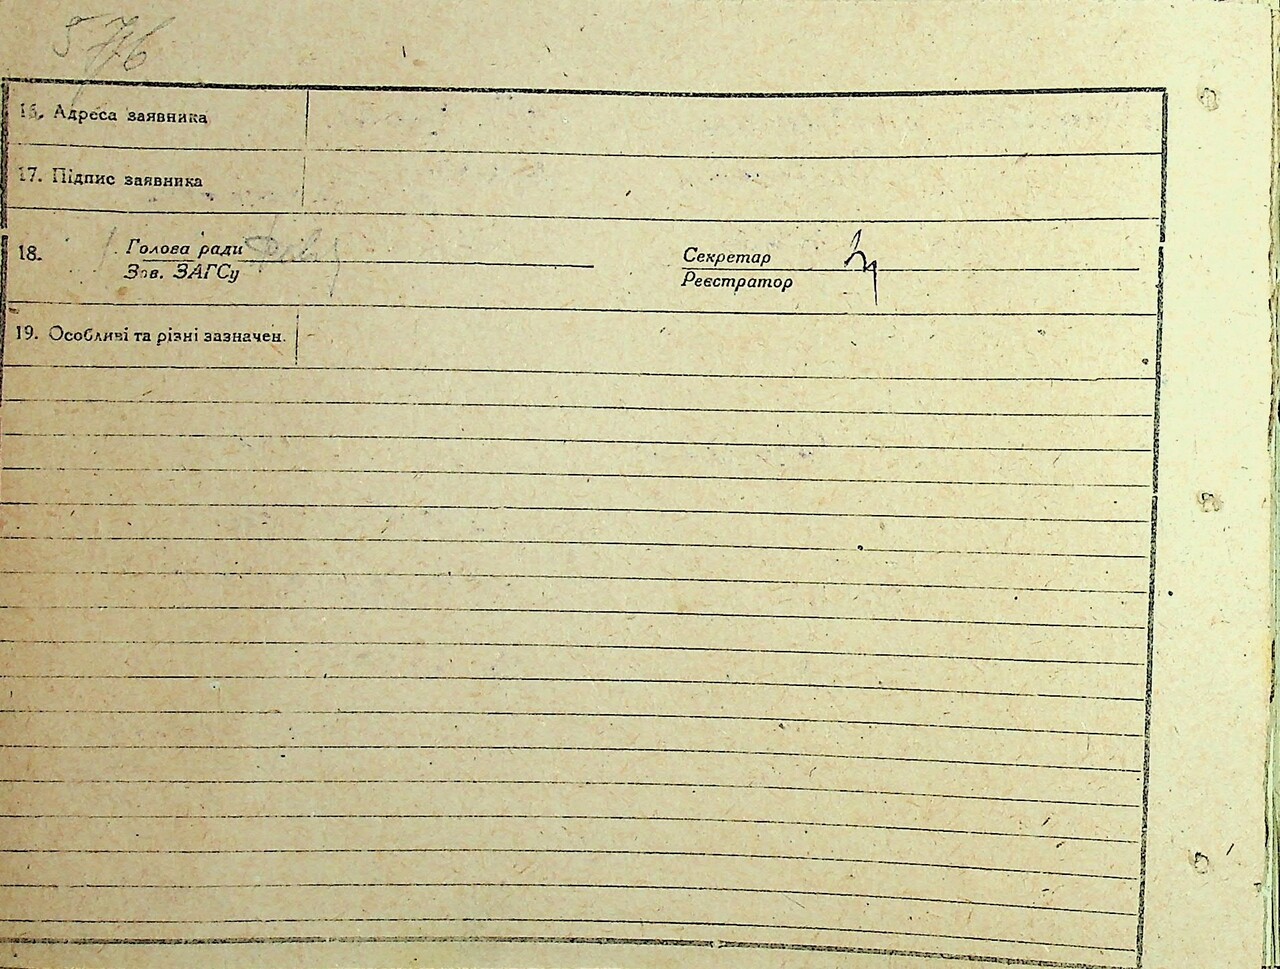 57 76
16. Адреса заявника
17. Підпис заявника
18. Голова ради Секретар
Зов. ЗАГСу Реєстратор
19. Особливі та різні зазначен.